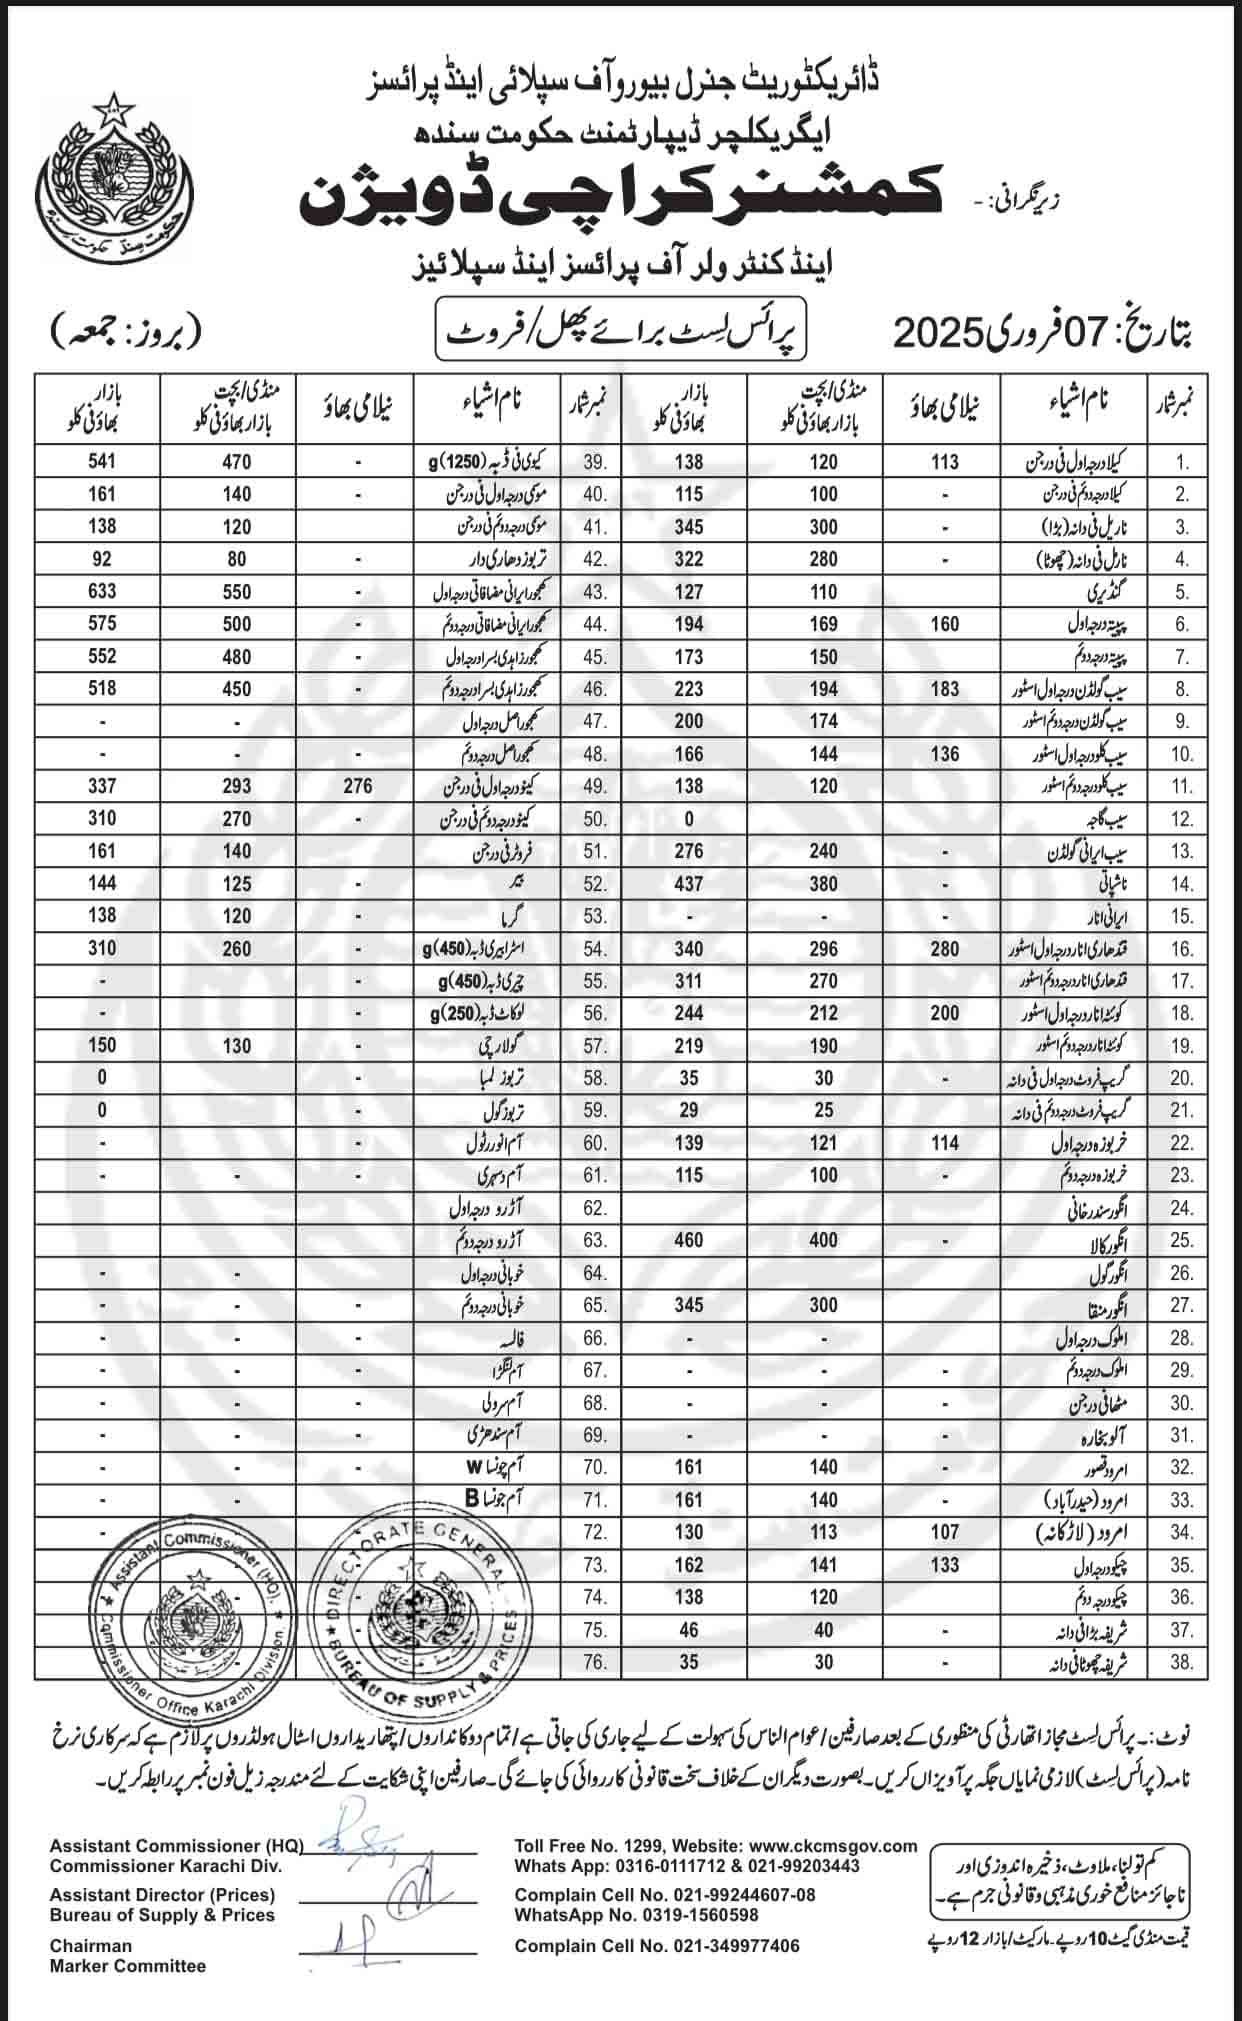 ڈائریکٹوریٹ جنرل بیورو آف سپلائی اینڈ پرائسز
ایگریکلچر ڈیپارٹمنٹ حکومت سندھ
زیر نگرانی: - کمشنر کراچی ڈویژن
اینڈ کنٹرولر آف پرائسز اینڈ سپلائیز
حکومت سندھ
بتاریخ: 07 فروری 2025 پرائس لسٹ برائے پھل/فروٹ (بروز: جمعہ)
نمبر شمار نام اشیاء نیلامی بھاؤ منڈی/بچت بازار بھاؤ فی کلو بازار بھاؤ فی کلو نمبر شمار نام اشیاء نیلامی بھاؤ منڈی/بچت بازار بھاؤ فی کلو بازار بھاؤ فی کلو
1. کیلا درجہ اول فی درجن 113 120 138 39. کیوی فی ڈبہ (1250)g - 470 541
2. کیلا درجہ دوئم فی درجن - 100 115 40. موسمی درجہ اول فی درجن - 140 161
3. ناریل فی دانہ (بڑا) - 300 345 41. موسمی درجہ دوئم فی درجن - 120 138
4. نارل فی دانہ (چھوٹا) - 280 322 42. تربوز دھاری دار - 80 92
5. گنڈیری 110 127 43. کھجور ایرانی مضافاتی درجہ اول - 550 633
6. پپیتہ درجہ اول 160 169 194 44. کھجور ایرانی مضافاتی درجہ دوئم - 500 575
7. پپیتہ درجہ دوئم 150 173 45. کھجور زاہدی بسرا درجہ اول - 480 552
8. سیب گولڈن درجہ اول اسٹور 183 194 223 46. کھجور زاہدی بسرا درجہ دوئم - 450 518
9. سیب گولڈن درجہ دوئم اسٹور 174 200 47. کھجور اصل درجہ اول - -
10. سیب کلو درجہ اول اسٹور 136 144 166 48. کھجور اصل درجہ دوئم - - -
11. سیب کلو درجہ دوئم اسٹور 120 138 49. کینو درجہ اول فی درجن 276 293 337
12. سیب گاجہ 0 50. کینو درجہ دوئم فی درجن - 270 310
13. سیب ایرانی گولڈن - 240 276 51. فروٹر فی درجن - 140 161
14. ناشپاتی - 380 437 52. بیر - 125 144
15. ایرانی انار - - - 53. گرما - 120 138
16. قندھاری انار درجہ اول اسٹور 280 296 340 54. اسٹرابیری ڈبہ (450)g - 260 310
17. قندھاری انار درجہ دوئم اسٹور 270 311 55. چیری ڈبہ (450)g - -
18. کوئٹہ انار درجہ اول اسٹور 200 212 244 56. لوکاٹ ڈبہ (250)g - -
19. کوئٹہ انار درجہ دوئم اسٹور 190 219 57. گولارچی - 130 150
20. گریپ فروٹ درجہ اول فی دانہ - 30 35 58. تربوز لمبا - 0
21. گریپ فروٹ درجہ دوئم فی دانہ 25 29 59. تربوز گول - 0
22. خربوزہ درجہ اول 114 121 139 60. آم انور رٹول - -
23. خربوزہ درجہ دوئم - 100 115 61. آم دسہری - - -
24. انگور سندرخانی 62. آڑو درجہ اول
25. انگور کالا - 400 460 63. آڑو درجہ دوئم
26. انگور گول 64. خوبانی درجہ اول - -
27. انگور منقا 300 345 65. خوبانی درجہ دوئم - - -
28. املوک درجہ اول - - 66. فالسہ - - -
29. املوک درجہ دوئم - - - 67. آم لنگڑا - - -
30. مٹھا فی درجن - - - 68. آم سرولی - - -
31. آلو بخارہ - - - 69. آم سندھڑی - - -
32. امرود قصور - 140 161 70. آم چونسا W - - -
33. امرود (حیدرآباد) - 140 161 71. آم چونسا B - - -
34. امرود (لاڑکانہ) 107 113 130 72. -
35. چیکو درجہ اول 133 141 162 73.
36. چیکو درجہ دوئم 120 138 74.
37. شریفہ بڑا فی دانہ - 40 46 75.
38. شریفہ چھوٹا فی دانہ - 30 35 76.
Assistant Commissioner (HQ).
Commissioner Office Karachi Division
DIRECTORATE GENERAL
BUREAU OF SUPPLY & PRICES
نوٹ:۔ پرائس لسٹ مجاز اتھارٹی کی منظوری کے بعد صارفین/عوام الناس کی سہولت کے لیے جاری کی جاتی ہے/تمام دوکانداروں/پتھاریداروں اسٹال ہولڈروں پر لازم ہے کہ سرکاری نرخ
نامہ (پرائس لسٹ) لازمی نمایاں جگہ پر آویزاں کریں۔ بصورت دیگر ان کے خلاف سخت قانونی کارروائی کی جائے گی۔ صارفین اپنی شکایت کے لئے مندرجہ زیل فون نمبر پر رابطہ کریں۔
Assistant Commissioner (HQ)
Commissioner Karachi Div.
Assistant Director (Prices)
Bureau of Supply & Prices
Chairman
Marker Committee
Toll Free No. 1299, Website: www.ckcmsgov.com
Whats App: 0316-0111712 & 021-99203443
Complain Cell No. 021-99244607-08
WhatsApp No. 0319-1560598
Complain Cell No. 021-349977406
کم تولنا، ملاوٹ، ذخیرہ اندوزی اور
ناجائز منافع خوری مذہبی و قانونی جرم ہے۔
قیمت منڈی گیٹ 10 روپے۔ مارکیٹ/بازار 12 روپے